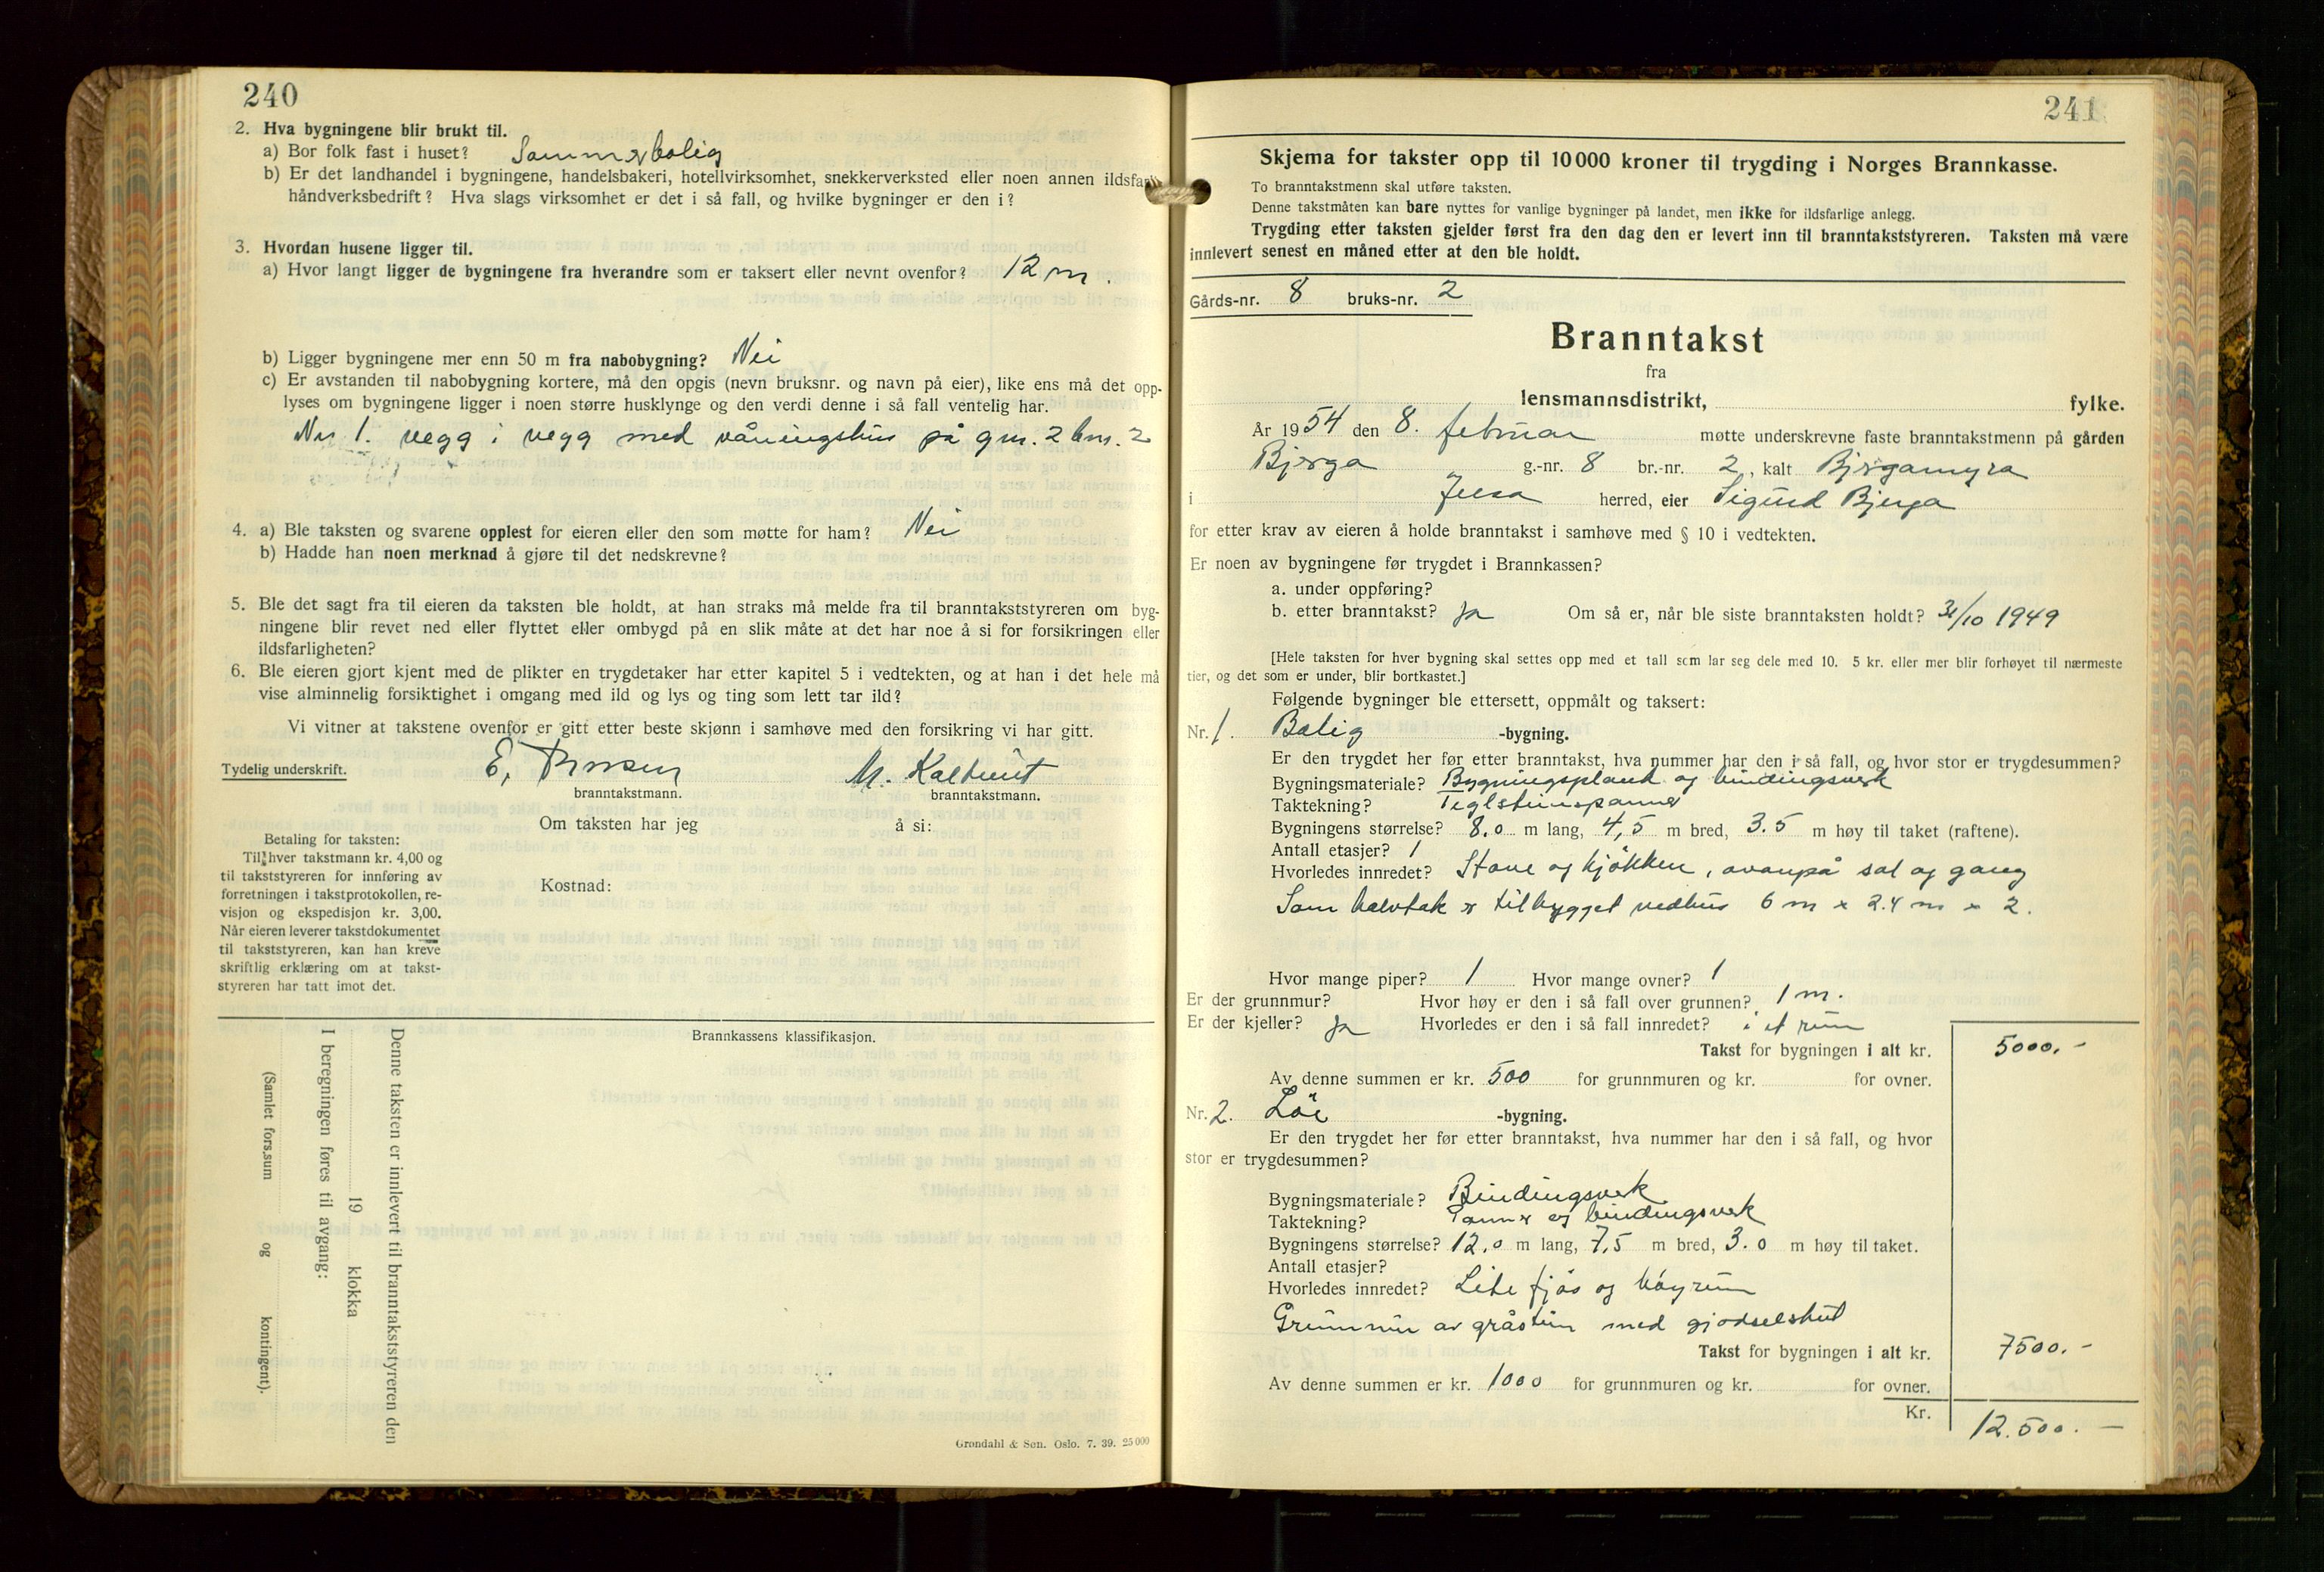 240
2. Hva bygningene blir brukt til.
a) Bor folk fast i huset? Sommerbolig
b) Er det landhandel i bygningene, handelsbakeri, hotellvirksomhet, snekkerverksted eller noen annen ildsfarlig
håndverksbedrift? Hva slags virksomhet er det i så fall, og hvilke bygninger er den i?
3. Hvordan husene ligger til.
a) Hvor langt ligger de bygningene fra hverandre som er taksert eller nevnt ovenfor? 12 m.
b) Ligger bygningene mer enn 50 m fra nabobygning? Nei
c) Er avstanden til nabobygning kortere, må den opgis (nevn bruksnr. og navn på eier), like ens må det opp-
lyses om bygningene ligger i noen større husklynge og den verdi denne i så fall ventelig har.
Nr 1. vegg i vegg med våningshus på gnr. 2 bnr. 2
4. a) Ble taksten og svarene opplest for eieren eller den som møtte for ham? Nei
b) Hadde han noen merknad å gjøre til det nedskrevne?
5. Ble det sagt fra til eieren da taksten ble holdt, at han straks må melde fra til branntakststyreren om byg-
ningene blir revet ned eller flyttet eller ombygd på en slik måte at det har noe å si for forsikringen eller
ildsfarligheten?
6. Ble eieren gjort kjent med de plikter en trygdetaker har etter kapitel 5 i vedtekten, og at han i det hele må
vise alminnelig forsiktighet i omgang med ild og lys og ting som lett tar ild?
Vi vitner at takstene ovenfor er gitt etter beste skjønn i samhøve med den forsikring vi har gitt.
Tydelig underskrift. E. M.
branntakstmann. branntakstmann.
Om taksten har jeg å si:
Betaling for taksten:
Til hver takstmann kr. 4,00 og
til takststyreren for innføring av
forretningen i takstprotokollen, re-
visjon og ekspedisjon kr. 3,00.
Når eieren leverer takstdokumentet
til takststyreren, kan han kreve
skriftlig erklæring om at takst-
styreren har tatt imot det.
Kostnad:
Brannkassens klassifikasjon.
Denne taksten er innlevert til branntakststyreren den
19 klokka
I beregningen føres til avgang:
(Samlet fors.sum og kontingent).
Grøndahl & Søn. Oslo. 7. 39. 25 000
241
Skjema for takster opp til 10 000 kroner til trygding i Norges Brannkasse.
To branntakstmenn skal utføre taksten.
Denne takstmåten kan bare nyttes for vanlige bygninger på landet, men ikke for ildsfarlige anlegg.
Trygding etter taksten gjelder først fra den dag den er levert inn til branntakststyreren. Taksten må være
innlevert senest en måned etter at den ble holdt.
Gårds-nr. 8 bruks-nr. 2
Branntakst
fra
lensmannsdistrikt, fylke.
År 1954 den 8. februar møtte underskrevne faste branntakstmenn på gården
Bjerga g.-nr. 8 br.-nr. 2, kalt Bjergamyra
i Jelsa herred, eier Sigurd Bjerga
for etter krav av eieren å holde branntakst i samhøve med § 10 i vedtekten.
Er noen av bygningene før trygdet i Brannkassen?
a. under oppføring?
b. etter branntakst? ja Om så er, når ble siste branntaksten holdt? 31/10 1949
[Hele taksten for hver bygning skal settes opp med et tall som lar seg dele med 10. 5 kr. eller mer blir forhøyet til nærmeste
tier, og det som er under, blir bortkastet.]
Følgende bygninger ble ettersett, oppmålt og taksert:
Nr. 1. Bolig -bygning.
Er den trygdet her før etter branntakst, hva nummer har den i så fall, og hvor stor er trygdesummen?
Bygningsmateriale? Bygningsplank og bindingsverk
Taktekning? Teglsteinspanner
Bygningens størrelse? 8.0 m lang, 4,5 m bred, 3.5 m høy til taket (raftene).
Antall etasjer? 1
Hvorledes innredet? Stove og kjökken, ovanpå sal og gang
Som halvtak er tilbygget vedhus 6 m x 2.4 m x 2.
Hvor mange piper? 1 Hvor mange ovner? 1
Er der grunnmur? Hvor høy er den i så fall over grunnen? 1 m.
Er der kjeller? ja Hvorledes er den i så fall innredet? i et rum
Takst for bygningen i alt kr. 5000.-
Av denne summen er kr. 500 for grunnmuren og kr. for ovner.
Nr. 2. Löe -bygning.
Er den trygdet her før etter branntakst, hva nummer har den i så fall, og hvor
stor er trygdesummen?
Bygningsmateriale? Bindingsverk
Taktekning? Panner og bindingsverk
Bygningens størrelse? 12.0 m lang, 7,5 m bred, 3.0 m høy til taket.
Antall etasjer?
Hvorledes innredet? Lite fjös og höyrum
Grunnmur av gråstein med gjødselskut
Takst for bygningen i alt kr. 7500.-
Av denne summen er kr. 1000 for grunnmuren og kr. for ovner.
Kr. 12.500.-